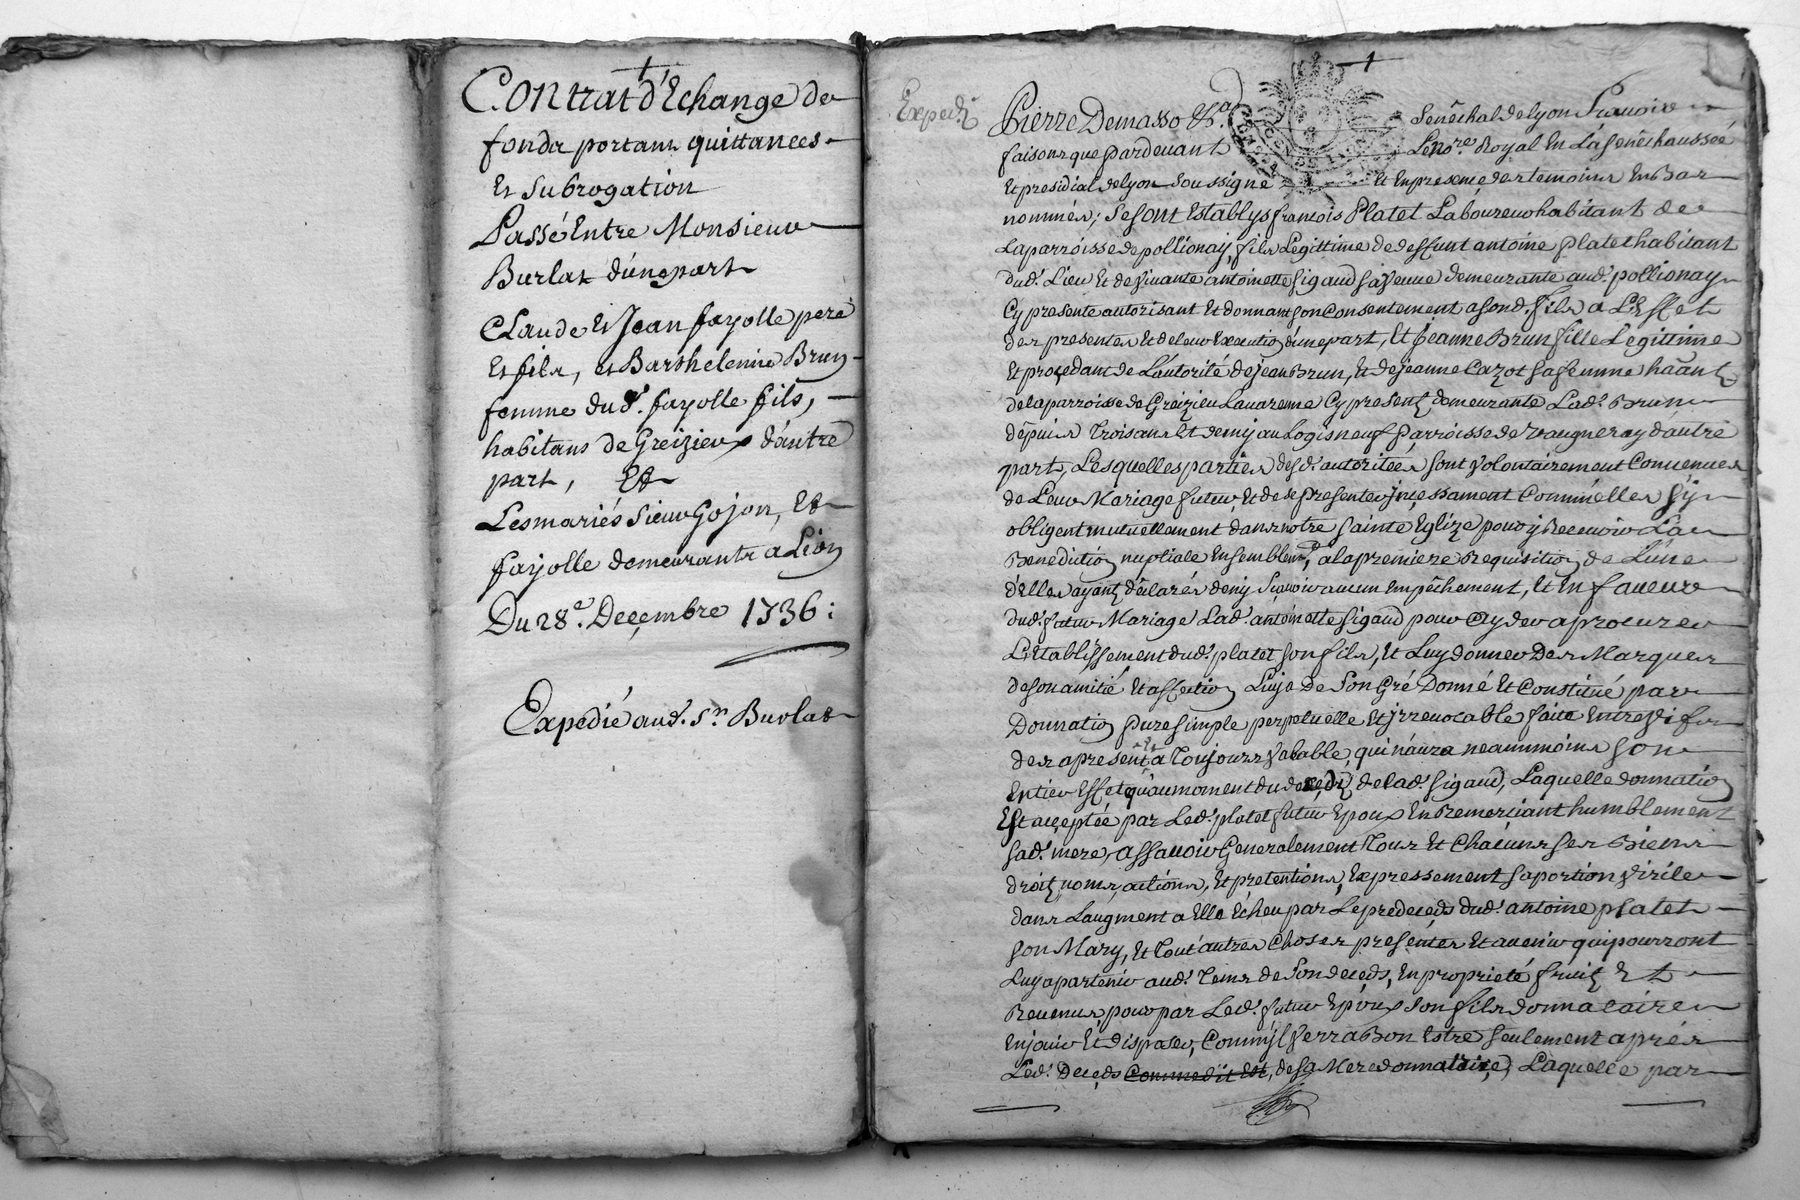 Contrat d'Echange de
fonds portant quittances
Et Subrogation
Passé Entre Monsieur
Burlat d'une part
Claude Et Jean fayolle pere
Et fils, et Barthelemie Brun
femme dud. fayolle fils,
habitans de Greizieux d'autre
part, Et
Les mariés Sieur Gojon, Et
fayolle demeurants a Lion
Du 28e. Decembre 1736:
Expedié aud. Sr. Burlat
1
Expedié
Pierre Demasso &a. Senêchal de Lyon Sçavoir
faisons que pardevant Le Nore. Royal En La senêchaussée
Et presidial de Lyon Soussigné Et En presence des temoins En Bas
nommés; Se sont Establys francois Platet Laboureur habitant de
La parroisse de pollionay, fils Legittime de deffunt antoine platet habitant
dud. Lieu Et de vivante antoinette Sigaud sa veuve demeurante aud. pollionay
Cy presente autorisant Et donnant son Consentement a sond. fils a L'Effet
des presentes Et de leur Execution d'une part, Et Jeanne Brun fille Legittime
Et procedant de L'autorité de Jean Brun, Et de Jeanne Cazot sa femme haants
de la parroisse de Greizieu Lavarenne Cy presents, demeurante Lad. Brun
dépuis Trois ans Et demy au Logis neuf Parroisse de Vaugneray d'autre
part, Lesquelles parties desd. autoritées sont volontairement Convenues
de Leur Mariage futur, Et de se presenter incessament Comm'elles s'y
obligent mutuellement dans notre Sainte Eglize pour y Recevoir La
Benediction nuptiale Ensemblemt. a la premiere Requisition de L'une
d'Elles ayants déclarés de n'y Sçavoir aucun Empêchement, Et En faveur
dud. futur Mariage Lad. antoinette Sigaud pour ayder a procurer
L'Etablissement dud. platet son fils, Et Luy donner Des Marques
de son amitié Et affection Luy a De Son Gré Donné Et Constitué par
Donnation pure simple perpetuelle Et irrevocable faite Entre vifs
des a present Et a Toujours valable, qui n'aura neammoins son
Entier Effet qu'au moment du decéds de lad. Sigaud, Laquelle donnation
Est acceptée par Led. platet futur Epoux En Remerciant humblement
Sad. mere, assavoir Generalement Tous Et Chacuns ses Biens
droits, noms, actions, Et pretentions, Expressement sa portion virile
dans L'augment a Elle Echeu par Le predeceds dud. antoine platet
son Mary, Et Tout'autres Choses presentes Et avenir qui pourront
Luy apartenir aud. Tems de Son deceds, En proprieté fruits Et
Revenus, pour par Led. futur Epoux Son fils donnataire
En jouir Et disposer, Comm'il verra Bon Estre seulement aprés
Led. Deceds Comme dit Est, de sa Mere donnatrice, Laquelle par